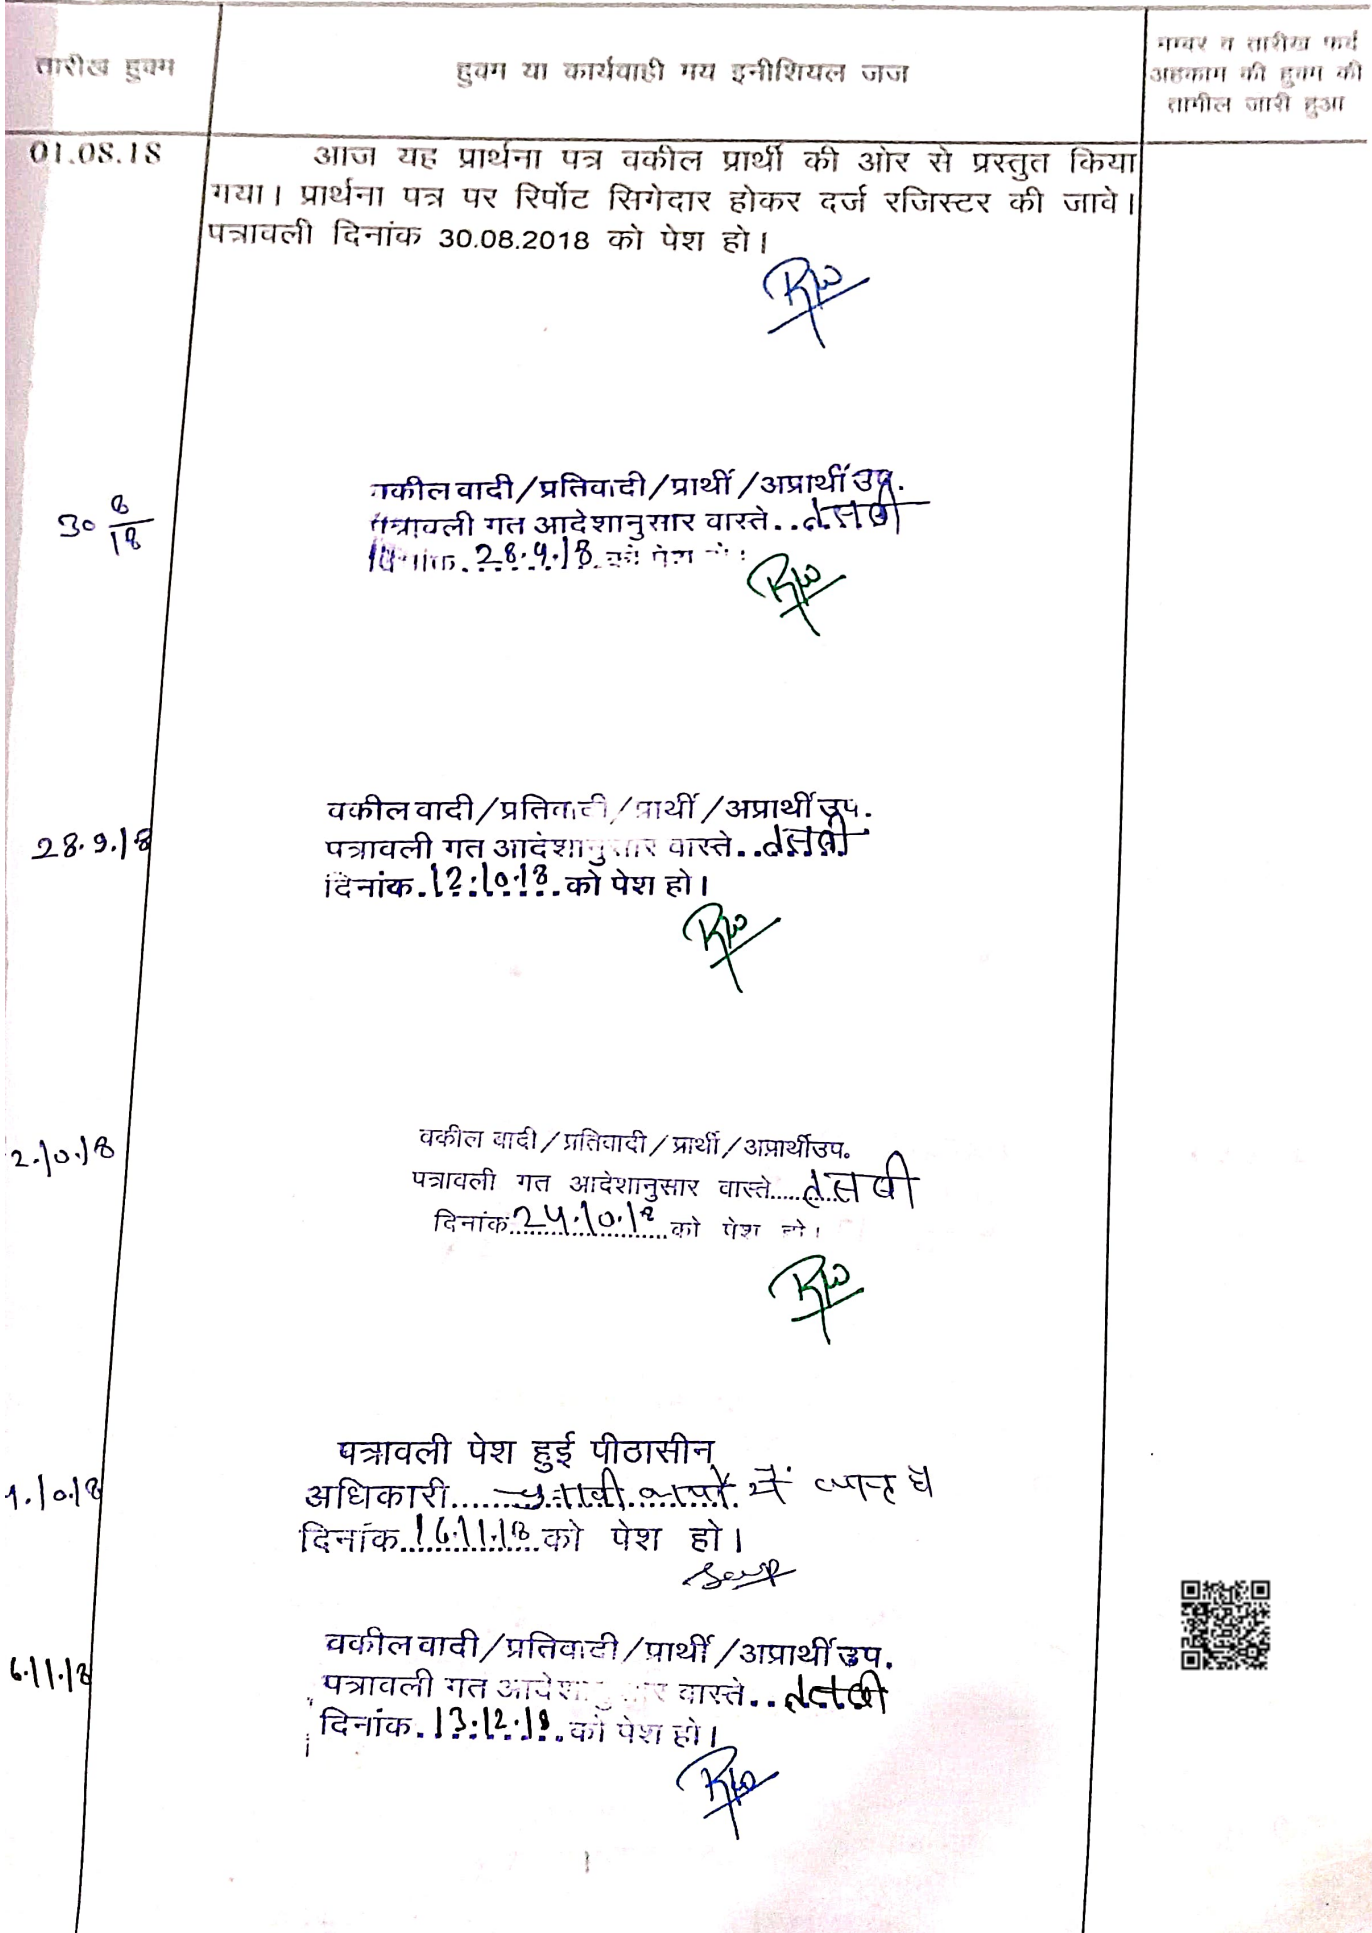 तारीख हुक्म
हुक्म या कार्यवाही मय इनीशियल जज
नम्बर व तारीख फर्द
अहकाम की हुक्म की
तामील जारी हुआ
01.08.18
आज यह प्रार्थना पत्र वकील प्रार्थी की ओर से प्रस्तुत किया
गया। प्रार्थना पत्र पर रिर्पोट सिगेदार होकर दर्ज रजिस्टर की जावे।
पत्रावली दिनांक 30.08.2018 को पेश हो।
30 8/18
वकील वादी/प्रतिवादी/प्रार्थी/अप्रार्थी उप.
पत्रावली गत आदेशानुसार वास्ते.. तलबी
दिनांक. 28.9.18 को पेश हो।
28.9.18
वकील वादी/प्रतिवादी/प्रार्थी/अप्रार्थी उप.
पत्रावली गत आदेशानुसार वास्ते.. तलबी
दिनांक. 12.10.18 को पेश हो।
2.10.18
वकील वादी/प्रतिवादी/प्रार्थी/अप्रार्थीउप.
पत्रावली गत आदेशानुसार वास्ते..... तलबी
दिनांक 24.10.18 को पेश हो।
पत्रावली पेश हुई पीठासीन
.10.18
अधिकारी...... चुनावी कार्यो में व्यस्त है
दिनांक 16.11.18 को पेश हो।
वकील वादी/प्रतिवादी/प्रार्थी/अप्रार्थी उप.
6.11.18
पत्रावली गत आदेशानुसार वास्ते.. तलबी
दिनांक. 13.12.18 को पेश हो।